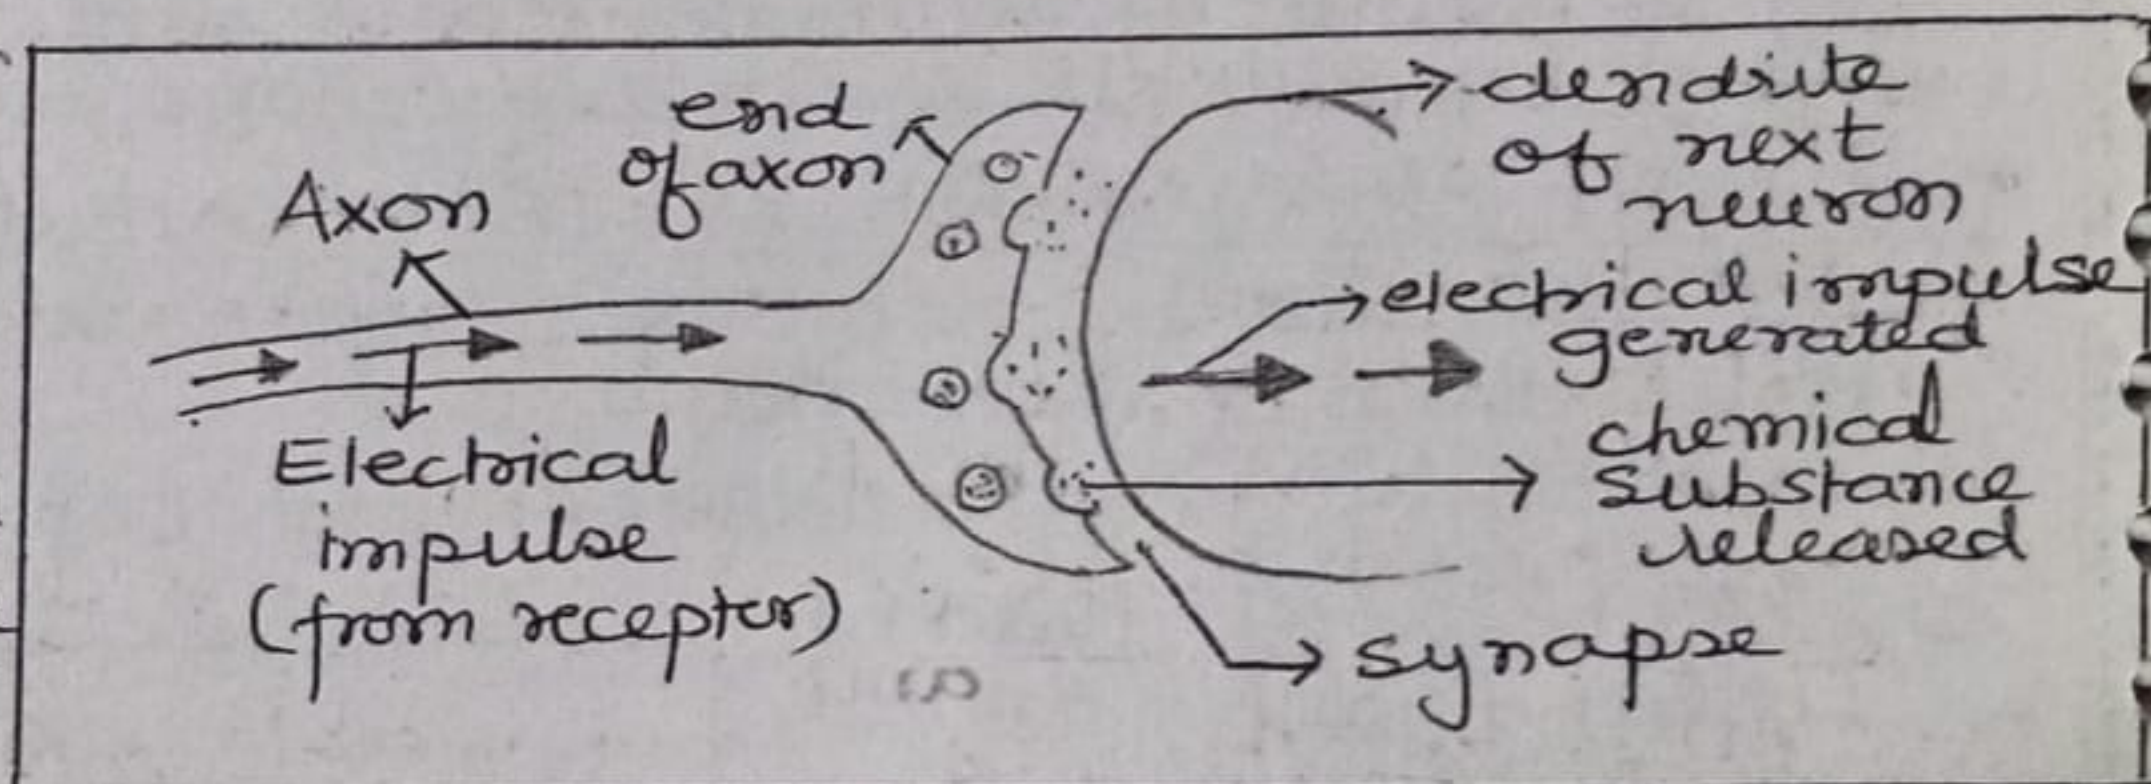 end
of axon
Axon
Electrical
impulse
(from receptor)
dendrite
of next
neuron
electrical impulse
generated
chemical
substance
released
synapse